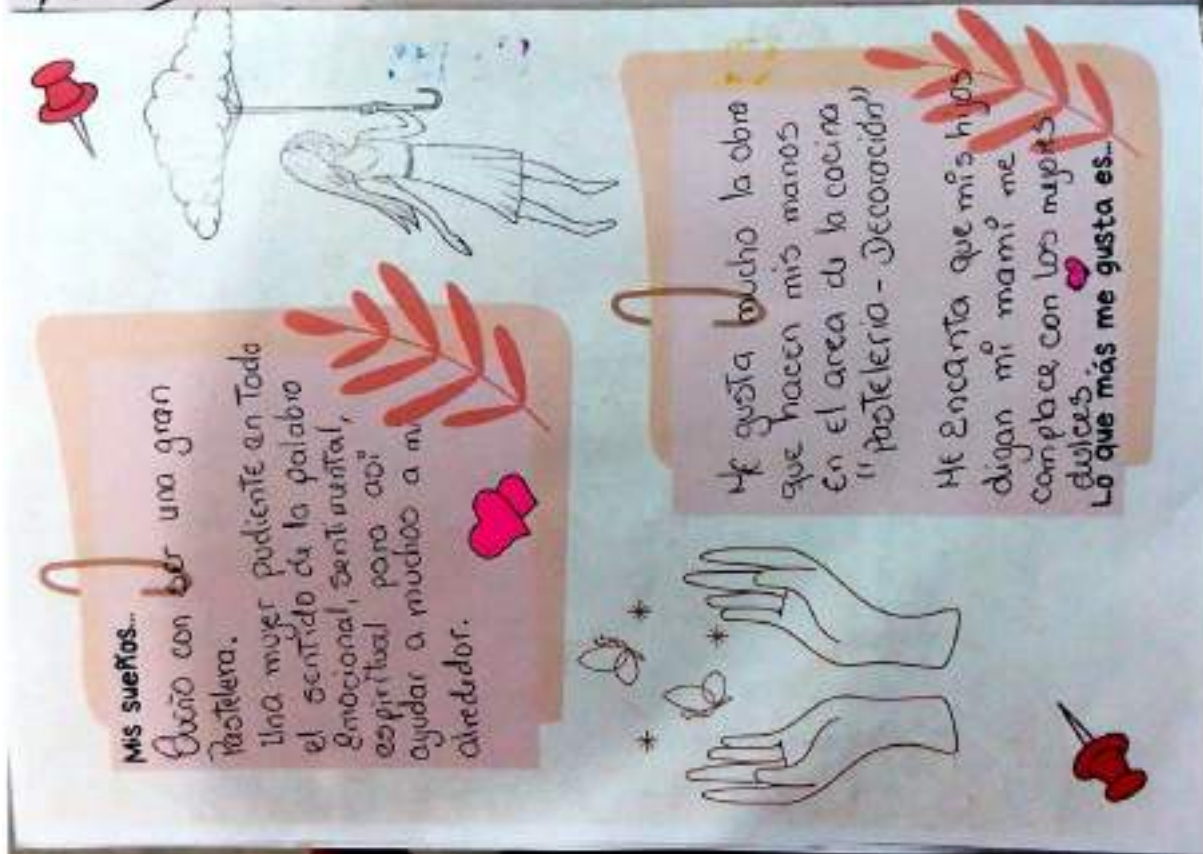 Mis sueños...
Sueño con ser una gran
Pastelera.
Una mujer pudiente en Todo
el sentido de la palabra
Emocional, sentimental,
espiritual para así
ayudar a muchos a mi
alrededor.
Me gusta mucho la obra
que hacen mis manos
En el area de la cocina
"Pasteleria - Decoración"
Me Encanta que mis hijos
digan mi mami me
complace con los mejores
dulces.
Lo que más me gusta es...